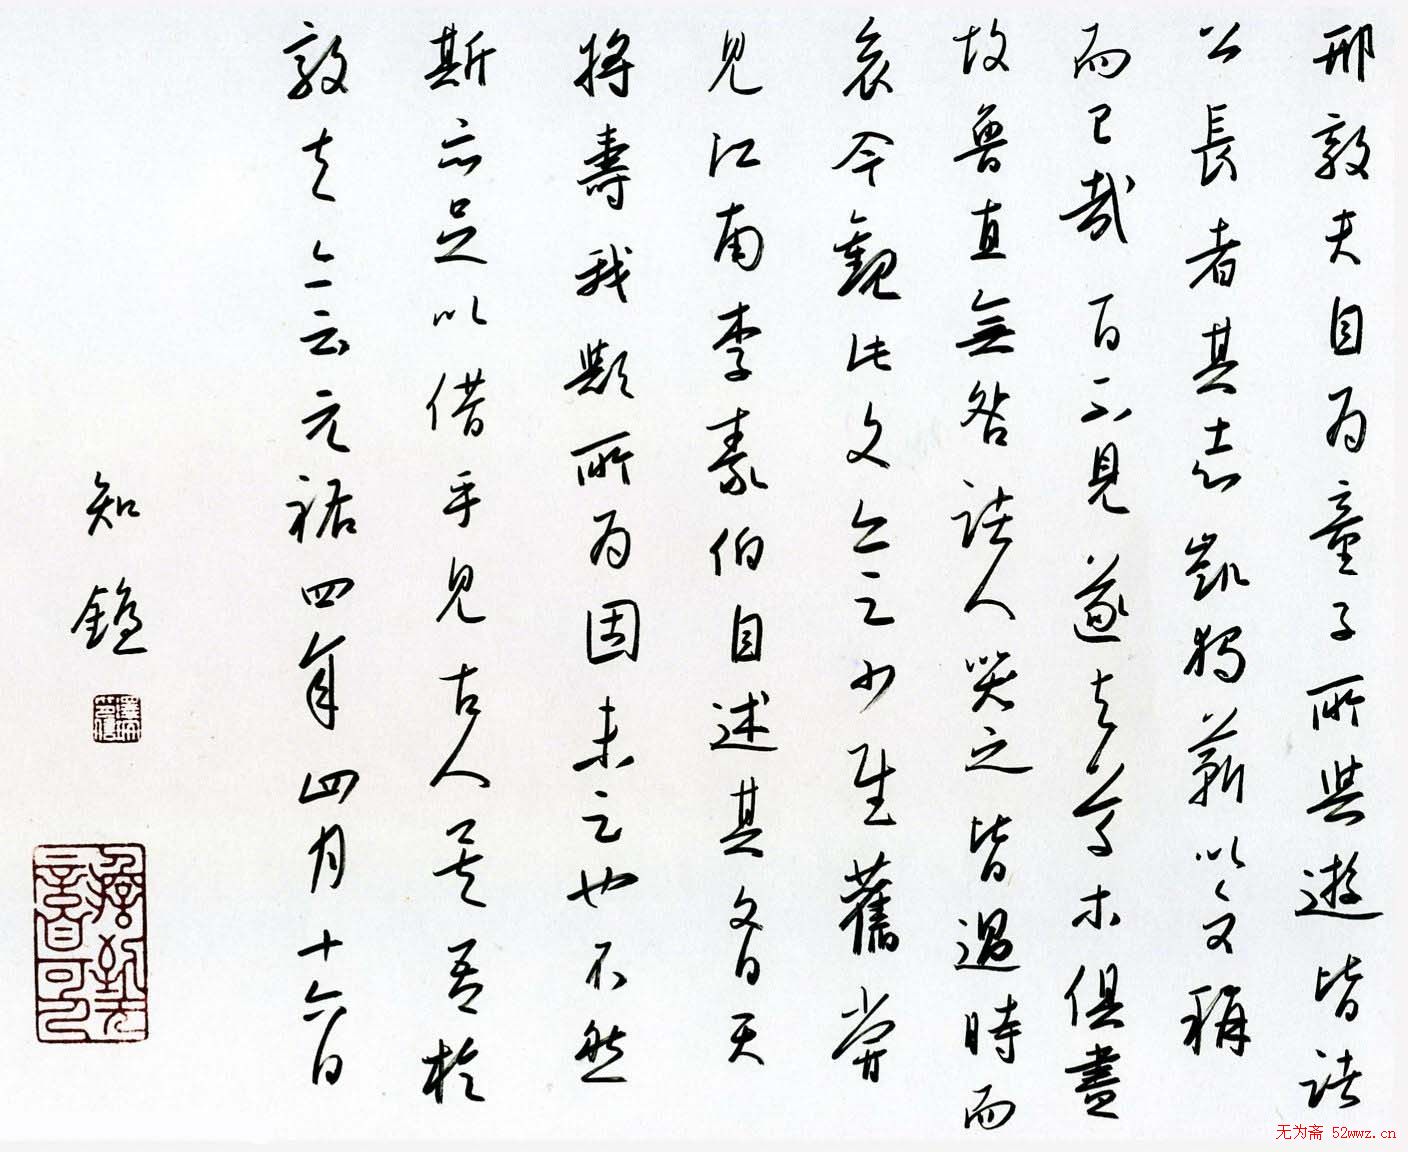 邢敦夫自为童子所與遊皆諸
公長者其志豈獨蘄以文稱
而已哉一日不見遂與草木俱盡
故魯直無咎諸人哭之皆過時而
哀今觀此文亦足少慰舊嘗
見江南李泰伯自述其文曰天
將壽我歟所为固未足也不然
斯亦足以借手見古人矣吾於
敦夫亦云元祐四年四月十六日
知鐙
无为斋 52wwz.cn